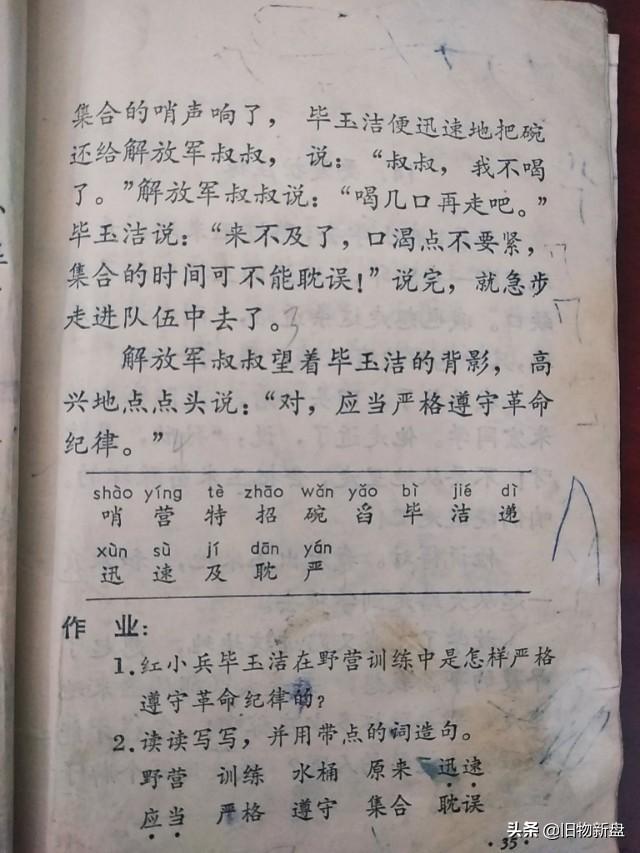 集合的哨声响了，毕玉洁便迅速地把碗
还给解放军叔叔，说：“叔叔，我不喝
了。”解放军叔叔说：“喝几口再走吧。”
毕玉洁说：“来不及了，口渴点不要紧，
集合的时间可不能耽误！”说完，就急步
走进队伍中去了。
解放军叔叔望着毕玉洁的背影，高
兴地点点头说：“对，应当严格遵守革命
纪律。”
shào yíng tè zhāo wǎn yǎo bì jié dì
哨 营 特 招 碗 舀 毕 洁 递
xùn sù jí dān yán
迅 速 及 耽 严
作 业：
1.红小兵毕玉洁在野营训练中是怎样严格
遵守革命纪律的？
2.读读写写，并用带点的词造句。
野营 训练 水桶 原来 迅速
应当 严格 遵守 集合 耽误
·35·
头条 @旧物新盘